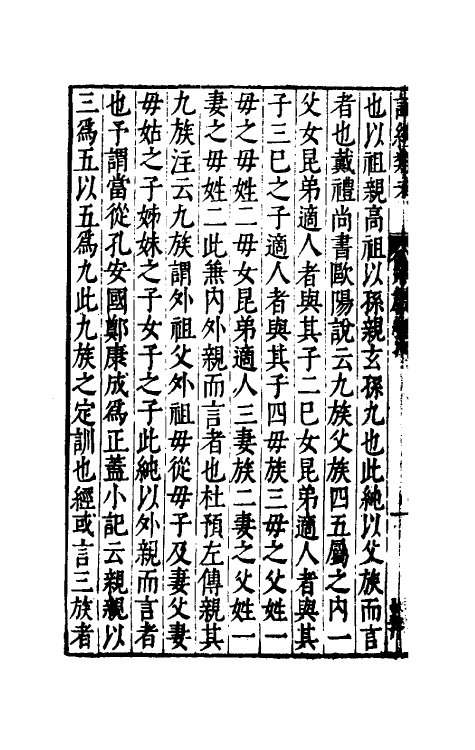 也以祖親高祖以孫親玄孫九也此純以父族而言
者也戴禮尚書歐陽說云九族父族四五屬之内一
父女昆弟適人者與其子二巳女昆弟適人者與其
子三巳之子適人者與其子四毋族三毋之父姓一
毋之毋姓二毋女昆弟適人三妻族二妻之父姓一
妻之毋姓二此兼内外親而言者也杜預左傳親其
九族注云九族謂外祖父外祖毋從毋子及妻父妻
毋姑之子姊妹之子女子之子此純以外親而言者
也予謂當從孔安國鄭康成爲正蓋小記云親親以
三爲五以五爲九此九族之定訓也經或言三族者